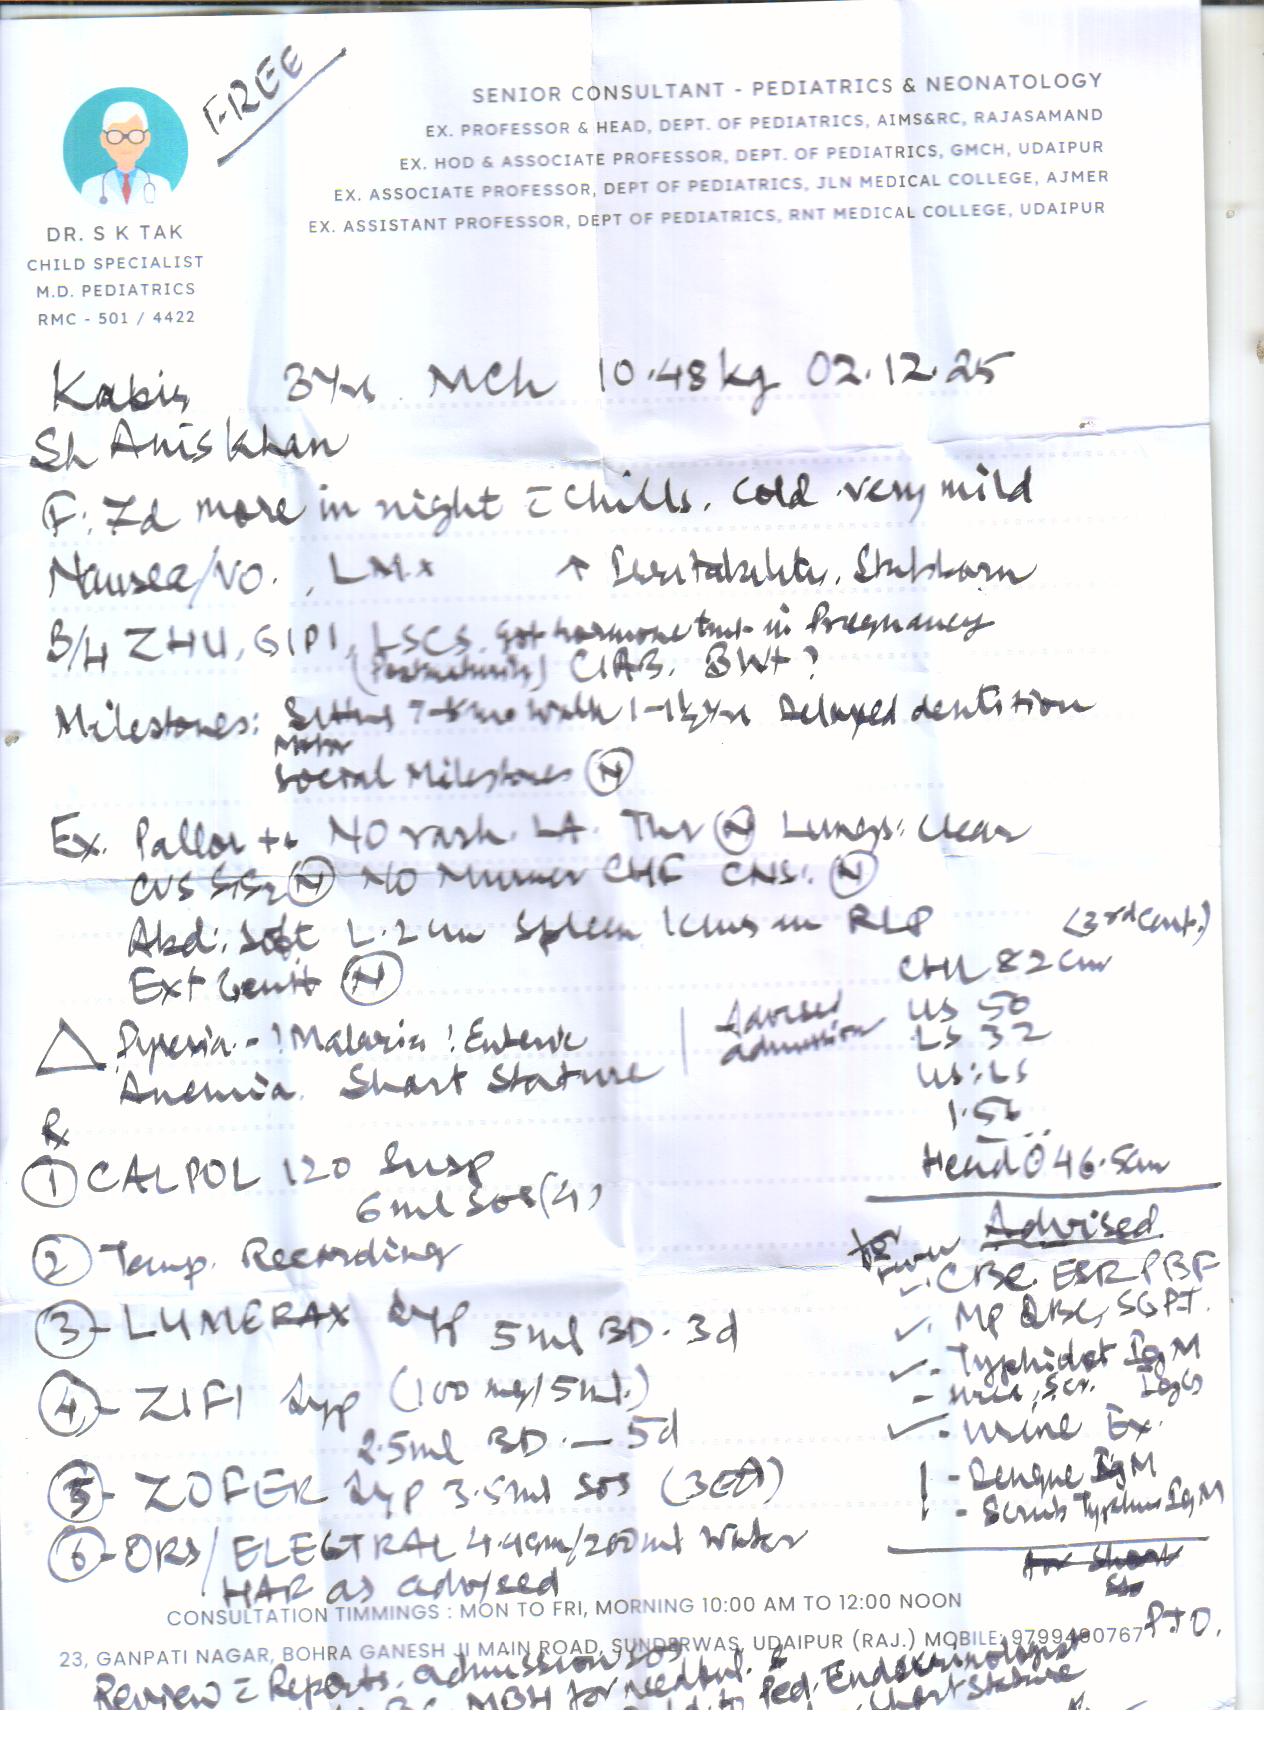 FREE
SENIOR CONSULTANT - PEDIATRICS & NEONATOLOGY
EX. PROFESSOR & HEAD, DEPT. OF PEDIATRICS, AIMS&RC, RAJASAMAND
EX. HOD & ASSOCIATE PROFESSOR, DEPT. OF PEDIATRICS, GMCH, UDAIPUR
EX. ASSOCIATE PROFESSOR, DEPT OF PEDIATRICS, JLN MEDICAL COLLEGE, AJMER
EX. ASSISTANT PROFESSOR, DEPT OF PEDIATRICS, RNT MEDICAL COLLEGE, UDAIPUR
DR. S K TAK
CHILD SPECIALIST
M.D. PEDIATRICS
RMC - 501 / 4422
3Yrs MCh 10.48kg 02.12.25
Sh Anis Khan
F: 7d more in night c chills. Cold very mild
Nausea/VO. ↑ Irritability, Stubborn
B/H ZHU, G1P1, LSCS, got hormone in Pregnancy
(Postmaturity) CIAB. BWt ?
Milestones: Sitting 7-8mo Walk 1-1½yrs Delayed dentition
Motor
Social Milestones (N)
Ex. Pallor ++ NO rash. LA. Thr (N) Lungs: Clear
CVS S1S2 (N) NO Murmur CHF CNS: (N)
Abd: Soft L. 2cm Spleen 1cm
Ext Genit (N)
(3rd cent.)
CHL 82cm
US 50
LS 32
US:LS
1.56
Head O 46.5cm
Advised admission
△ Pyrexia - ?Malaria ?Enteric
Anemia. Short Stature
Rx
① CALPOL 120 Susp
6ml SOS (4)
② Temp. Recording
③- LUMERAX Syp 5ml BD. 3d
④- ZIFI Syp (100mg/5ml)
2.5ml BD. — 5d
⑤- ZOFER Syp 3.5ml SOS
⑥- ORS/ELECTRAL 4.4gm/200ml Water
HAF as advised
Advised
CBC ESR PBF
MP QBC, SGPT.
- Typhidot IgM
IgG
- Urea, Scr.
- Urine Ex.
- Dengue IgM
- Scrub Typhus IgM
PTO.
CONSULTATION TIMMINGS : MON TO FRI, MORNING 10:00 AM TO 12:00 NOON
23, GANPATI NAGAR, BOHRA GANESH JI MAIN ROAD, SUNDERWAS, UDAIPUR (RAJ.) MOBILE: 9799490767
Review c Reports. admission SOS
MBH for needful. &
to Ped. Endocrinologist
Short Stature